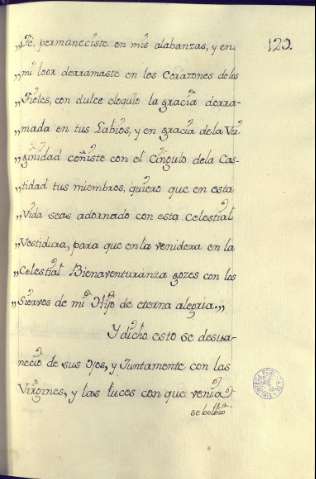 129.
„Fé, permaneciste en mis alabanzas, y en
„mi loor derramaste en los Corazones de los
„Fieles, con dulce eloquio la gracia derra-
„mada en tus Labios, y en gracia de la Vir
„ginidad ceñiste con el Cingulo de la Cas-
„tidad tus miembros, quiero que en esta
„Vida seas adornado con esta Celestial
„Vestidura, para que en la venidera en la
„Celestial Bienaventuranza gozes con los
„Siervos de mi Hijo de eterna alegria.„
Y dicho esto se desva-
neció de sus Ojos, y Juntamente con las
Virgines, y las Luces con que venia
se bolbió